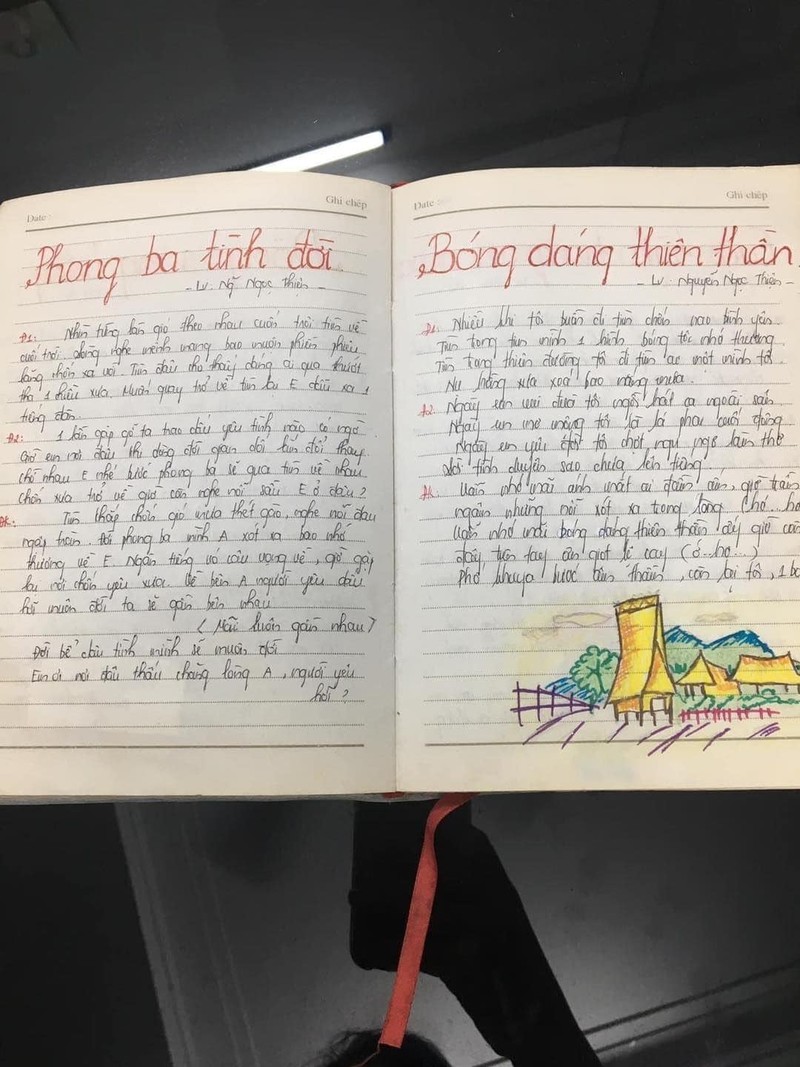 Date
Ghi chép
Phong ba tình đời
- LV. Ng Ngọc Thiện -
Đ1: Nhìn từng làn gió theo nhau cuốn trôi tìm về
cuối trời. Lắng nghe mênh mang bao muộn phiền phiêu
lãng chốn xa vời. Tìm đâu cho thấy dáng ai qua thướt
tha 1 chiều xưa. Muốn quay trở về tìm lại E dấu xa 1
tiếng đàn.
Đ2: 1 lần gặp gỡ ta trao dấu yêu tình nào có ngờ
Giờ em nơi đâu thì đừng dối gian đổi thay
cho nhau E nhé bước phong ba sẽ qua tìm về nhau
chốn xưa trở về giờ còn nghe nỗi sầu E ở đâu?
ĐK: Tìm thấp chốn gió mưa thét gào, nghe nỗi đau
ngày tràn. Đời phong ba mình A xót xa bao nhớ
thương về E. Ngần tiếng vó câu vọng về, giờ gãy
lại nơi chốn yêu xưa. Về bên A người yêu dấu
hỡi muôn đời ta sẽ gần bên nhau
< Mãi luôn gần nhau >
Đời bể dâu tình mình sẽ muôn đời
Em ơi nơi đâu thấu chăng lòng A, người yêu
hỡi?
Date
Ghi chép
Bóng dáng thiên thần
- LV. Nguyễn Ngọc Thiện -
Đ1. Nhiều khi tôi buồn đi tìm chốn nao bình yên
Tìm trong tim mình 1 hình bóng tôi nhớ thương
Tìm trong thiên đường tôi đi tìm lạc một mình tôi
Nụ hồng xưa xoá bao nắng mưa.
Đ2. Ngày em vui đười tôi ngồi hát ca ngoài sân
Ngày em mơ mộng tôi là lá phai cuối đông
Ngày em yêu đời tôi chợt ngu ngơ làm thơ
Vời tình duyên sao chưa lên tiếng
ĐK Vẫn nhớ mãi ánh mắt ai đằm ấm, giờ trầm
ngâm nhưng nỗi xót xa trong lòng (hó..
Vẫn nhớ mãi bóng dáng thiên thần ấy giờ còn
đây trên tay còn giọt lệ cay (ớ...hớ...)
Phố khuya bước âm thầm, còn lại tôi, 1